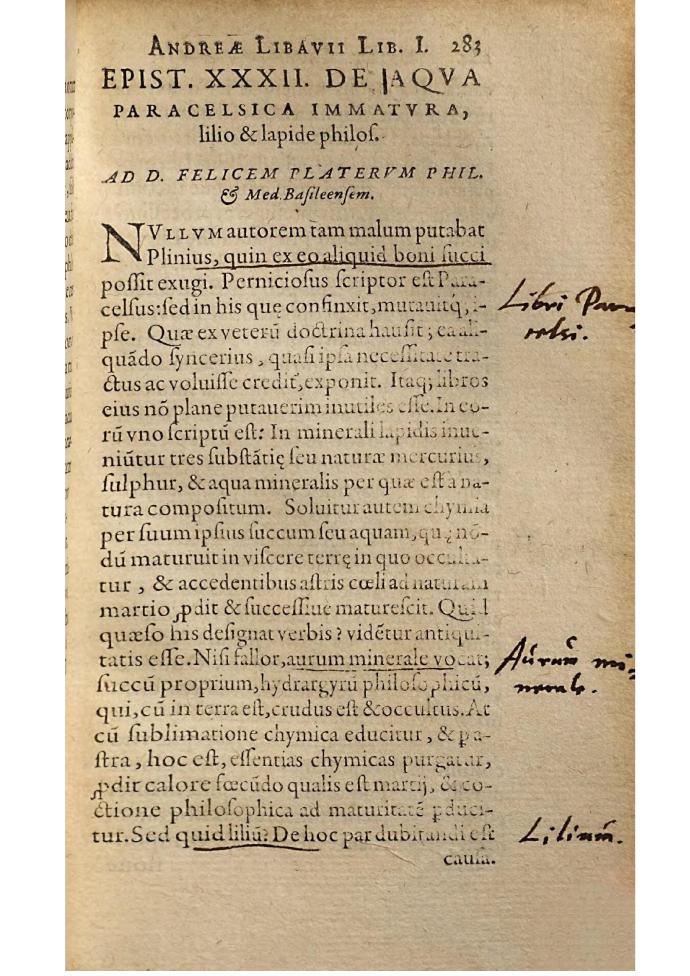 ANDREÆ LIBAVII LIB. I. 283
EPIST. XXXII. DE AQVA
PARACELSICA IMMATVRA,
lilio & lapide philos.
AD D. FELICEM PLATERVM PHIL.
& Med. Basileensem.
NVLLVM autorem tam malum putabat
Plinius, quin ex eo aliquid boni succi
possit exugi. Perniciosus scriptor est Para-
celsus: sed in his quę confinxit, mutauitq́, i-
pse. Quæ ex veterū doctrina hausit; ea ali-
quādo syncerius, quasi ipsa necessitate tra-
ctus ac voluisse credit, exponit. Itaq; libros
eius nō plane putauerim inutiles esse. In eo-
rū vno scriptū est: In minerali lapidis inue-
niūtur tres substātię seu naturæ mercurius,
sulphur, & aqua mineralis per quæ est a na-
tura compositum. Soluitur autem chymia
per suum ipsius succum seu aquam, quę nō-
dū maturuit in viscere terrę in quo occulta-
tur, & accedentibus astris cœli ad naturam
martio ꝓdit & successiue maturescit. Quid
quæso his designat verbis? vidētur antiqui-
tatis esse. Nisi fallor, aurum minerale vocat;
succū proprium, hydrargyrū philosophicū,
qui, cū in terra est, crudus est & occultus. At
cū sublimatione chymica educitur, & pa-
stra, hoc est, essentias chymicas purgatur,
ꝓdit calore fœcūdo qualis est martij, & co-
ctione philosophica ad maturitatē ꝓduci-
tur. Sed quid liliū? De hoc par dubitandi est
causa.
Libri Para
celsi.
Aurum mi-
nerale.
Lilium.